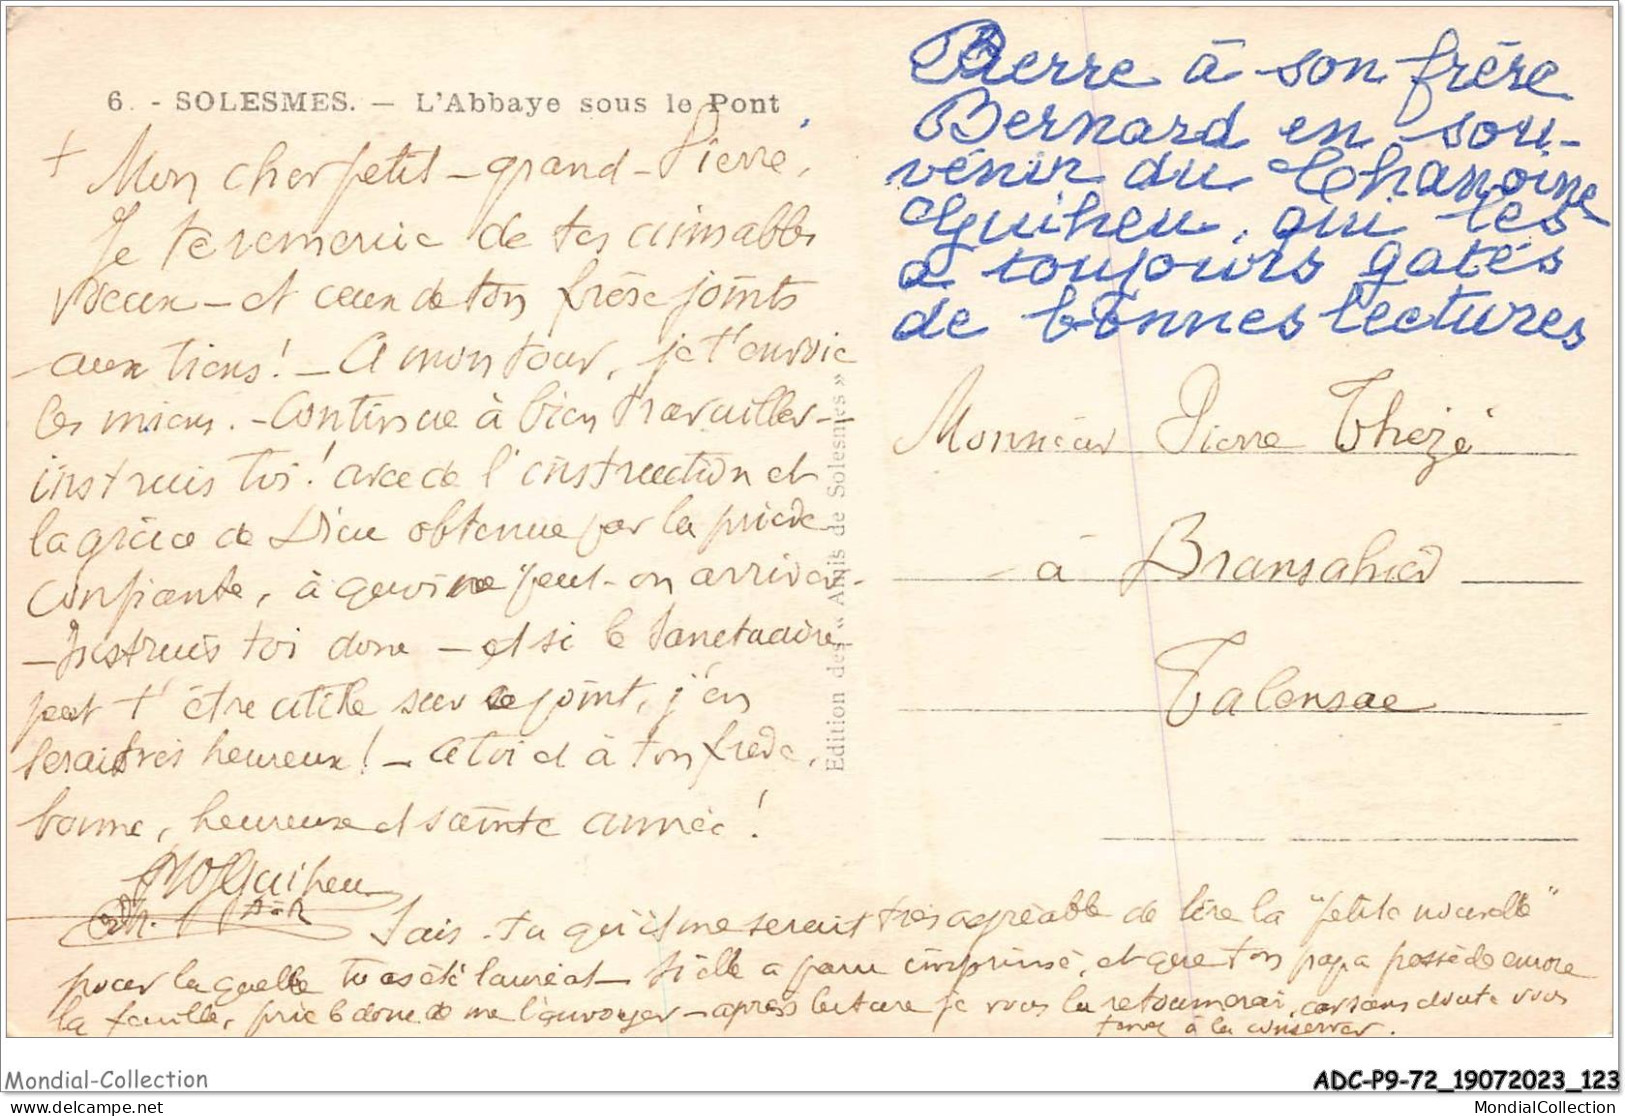 6. - SOLESMES. — L'Abbaye sous le Pont
+ Mon cher petit-grand-Pierre,
Je te remercie de tes aimables
voeux - et ceux de ton frère joints
aux tiens! - A mon tour, je t'envoie
les miens. - Continue à bien travailler -
instruis toi! avec de l'instruction et
la grâce de Dieu obtenue par la prière
confiante, à quoi ne peut-on arriver.
- Instruis toi donc - et si le Sanctuaire
peut t'être utile sur ce point, j'en
serais très heureux! - A toi et à ton frère,
bonne, heureuse et sainte année!
Guiheu
Sais-tu qu'il me serait très agréable de lire la "petite nouvelle"
pour laquelle tu as été lauréat - Si elle a paru imprimé, et que ton papa possède encore
la feuille, prie le donc de me l'envoyer - après lecture je vous la retournerai, car sans doute vous
tenez à la conserver.
Edition des « Amis de Solesmes »
Pierre à son frère
Bernard en sou-
vénir du Chanoine
Guiheu, qui les
a toujours gatés
de bonnes lectures
Monsieur Pierre Thézé
à Bransahier
Talensac
Mondial-Collection
ADC-P9-72_19072023_123
www.delcampe.net
MondialCollection